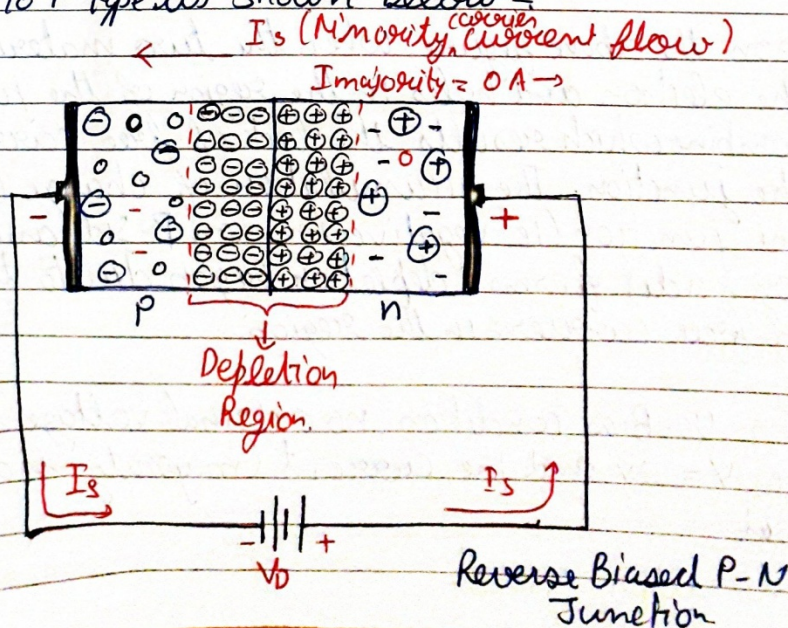 Type as shown below =
Is (Minority carrier current flow)
Imajority = 0 A →
- +
p n
Depletion
Region.
Is Is
- +
VD
Reverse Biased P-N
Junction